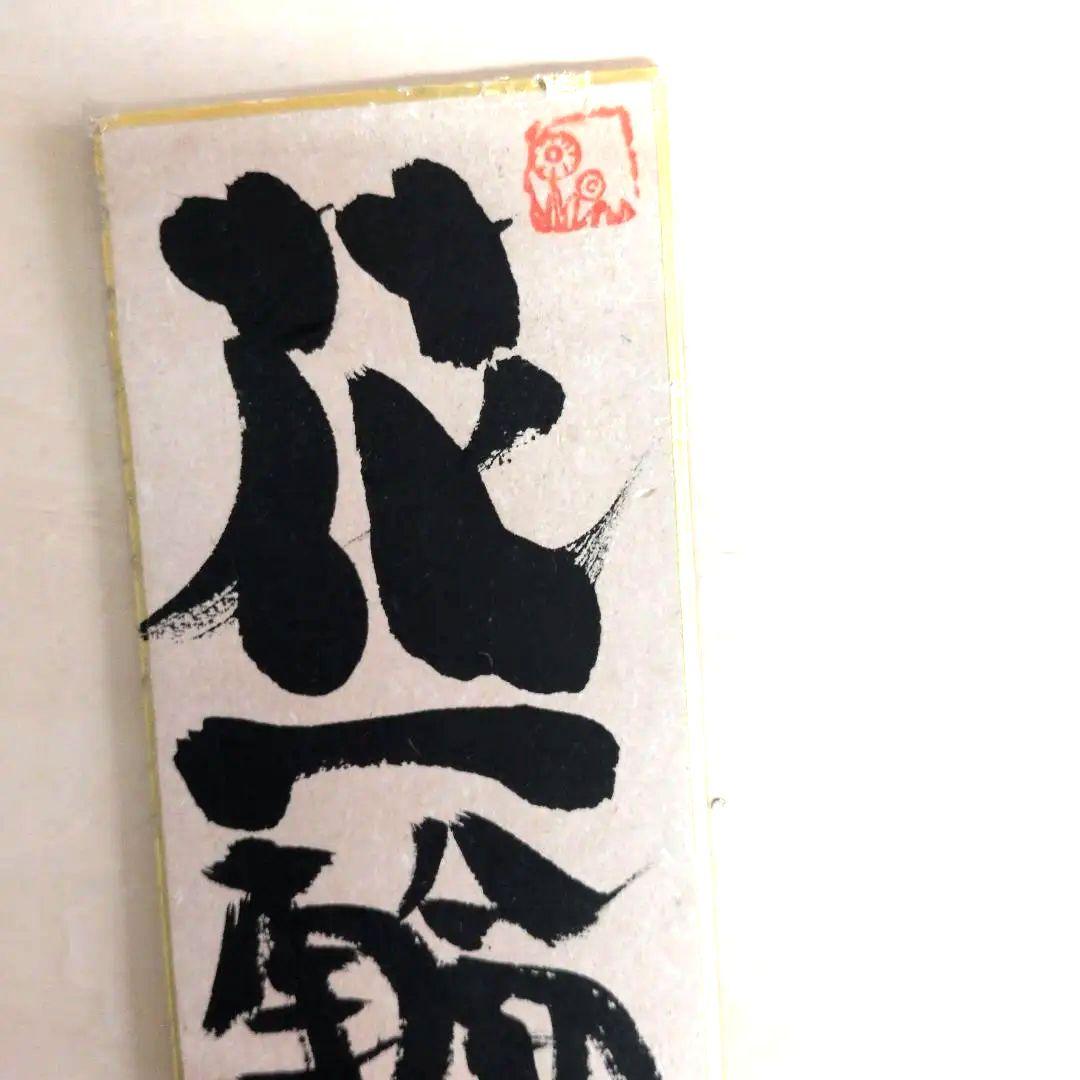 花一輪